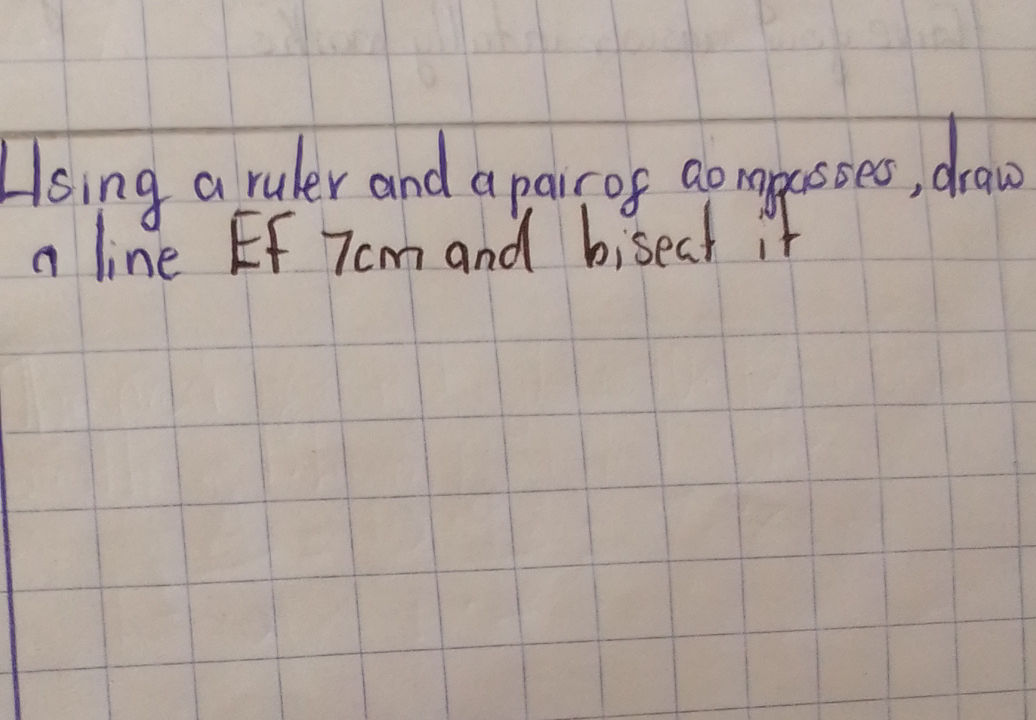 Using a ruler and a pair of compasses, draw
a line EF 7cm and bisect it